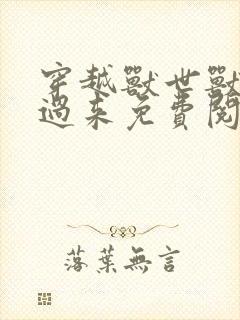 穿越獸世獸
過来免費閱
落葉無言